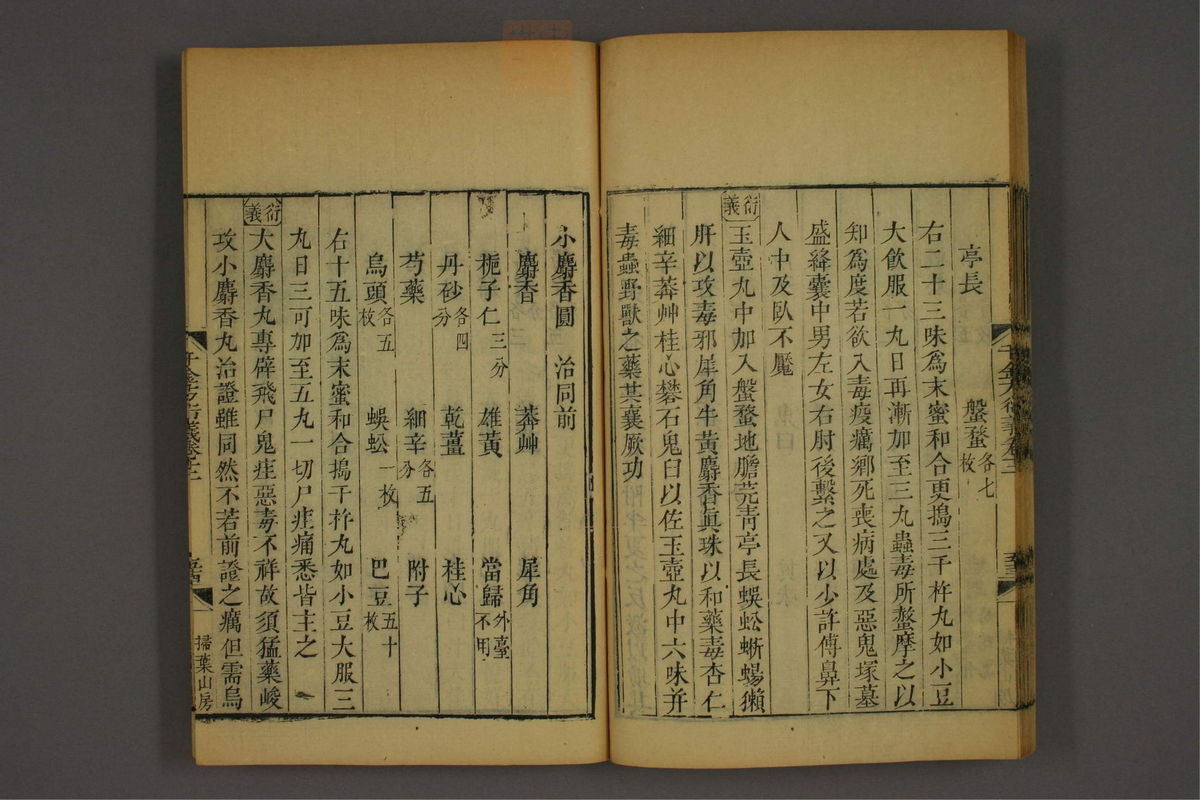 亭長 盤蝥各七枚
右二十三味為末蜜和合更搗三千杵丸如小豆
大飲服一丸日再漸加至三丸蟲毒所螫摩之以
知為度若欲入毒疫癘鄉死喪病處及惡鬼塚墓
盛絳囊中男左女右肘後繫之又以少許傅鼻下
人中及臥不魘
衍義
玉壺丸中加入盤蝥地膽芫青亭長蜈蚣蜥蜴獺
肝以攻毒邪犀角牛黃麝香眞珠以和藥毒杏仁
細辛莽艸桂心礬石鬼臼以佐玉壺丸中六味并
毒蟲野獸之藥其襄厥功
小麝香圓 治同前
麝香 莽艸 犀角
梔子仁三分 雄黃 當歸外臺不用
丹砂各四分 乾薑 桂心
芍藥 細辛各五分 附子
烏頭各五枚 蜈蚣一枚 巴豆五十枚
右十五味為末蜜和合搗千杵丸如小豆大服三
丸日三可加至五丸一切尸疰痛悉皆主之
衍義
大麝香丸專辟飛尸鬼疰惡毒不祥故須猛藥峻
攻小麝香丸治證雖同然不若前證之癘但需烏
千金方衍義卷十二
掃葉山房